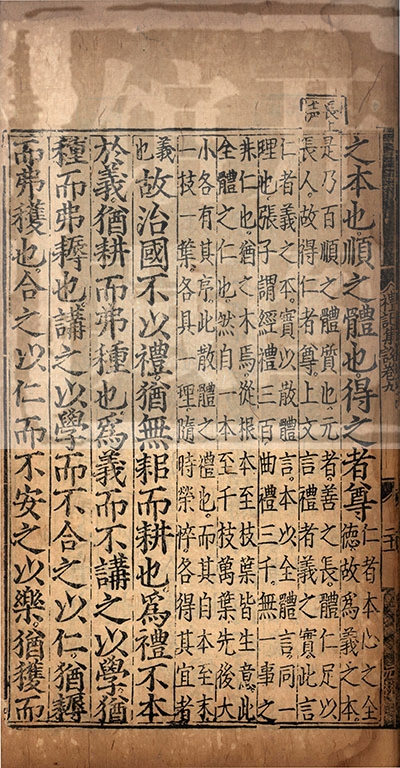 長上
聲
禮記集說卷九
之本也順之體也得之者尊
仁者本心之全
德故為義之本
是乃百順之體質也元者善之長體仁足以
長人故得仁者尊上文言禮者義之實此言
仁者義之本實以散體言本以全體言同一
理也張子謂經禮三百曲禮三千無一事之
非仁也猶之木焉從根本至枝葉皆生意此
全體之仁也然自一本至千枝萬葉先後大
小各有其序此散體之禮也而其自本至末
一枝一葉各具一理隨時榮悴各得其宜者
義也
故治國不以禮猶無耜而耕也為禮不本
於義猶耕而弗種也為義而不講之以學猶
種而弗耨也講之以學而不合之以仁猶耨
而弗穫也合之以仁而不安之以樂猶穫而